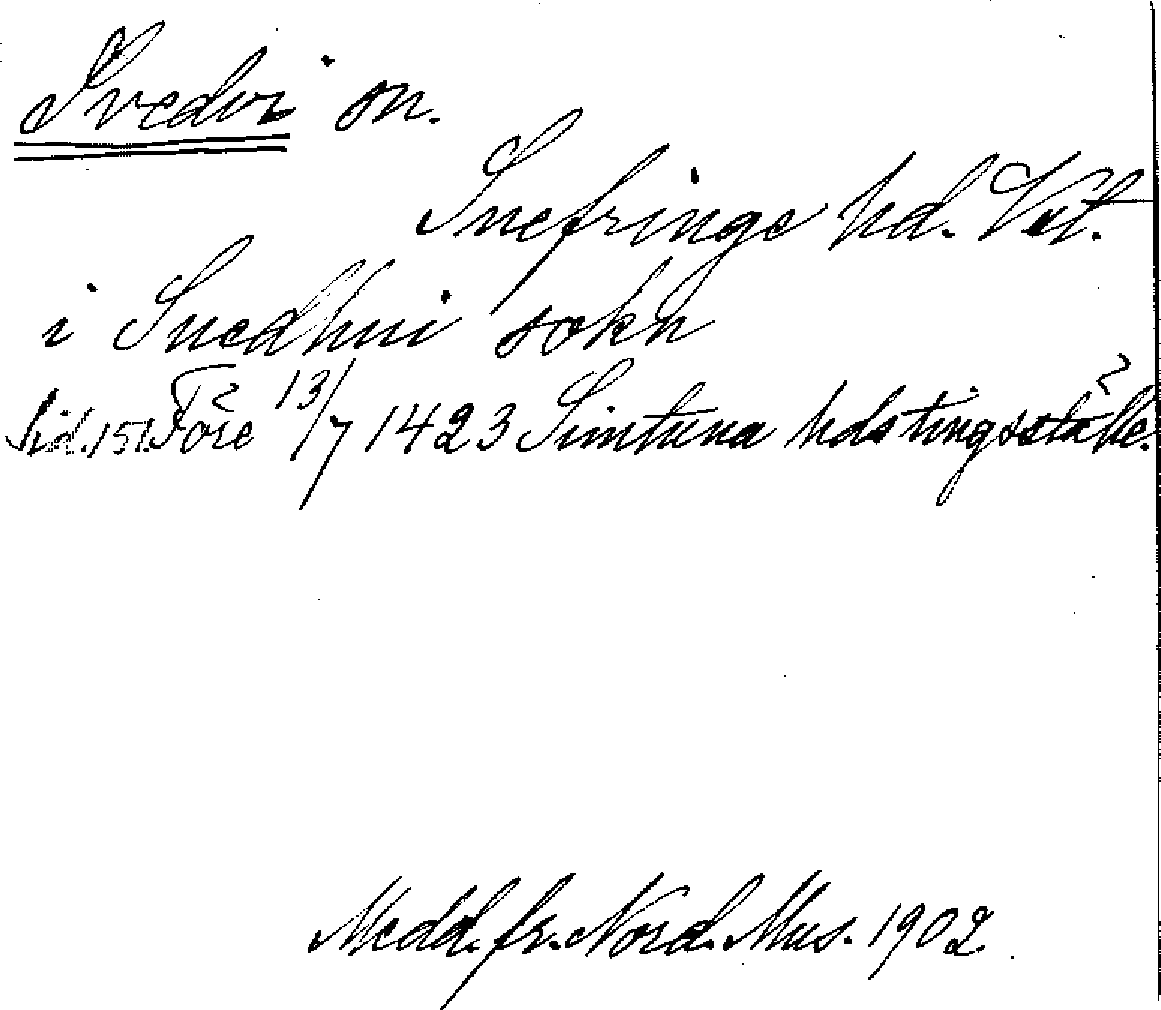 Svedvi sn.
Snefringe hd. Vstm.
i Suedhui sokn
Sid. 151. Före 13/7 1423 Simtuna hds tingsställe.
Medd. fr. Nord. Mus. 1902.